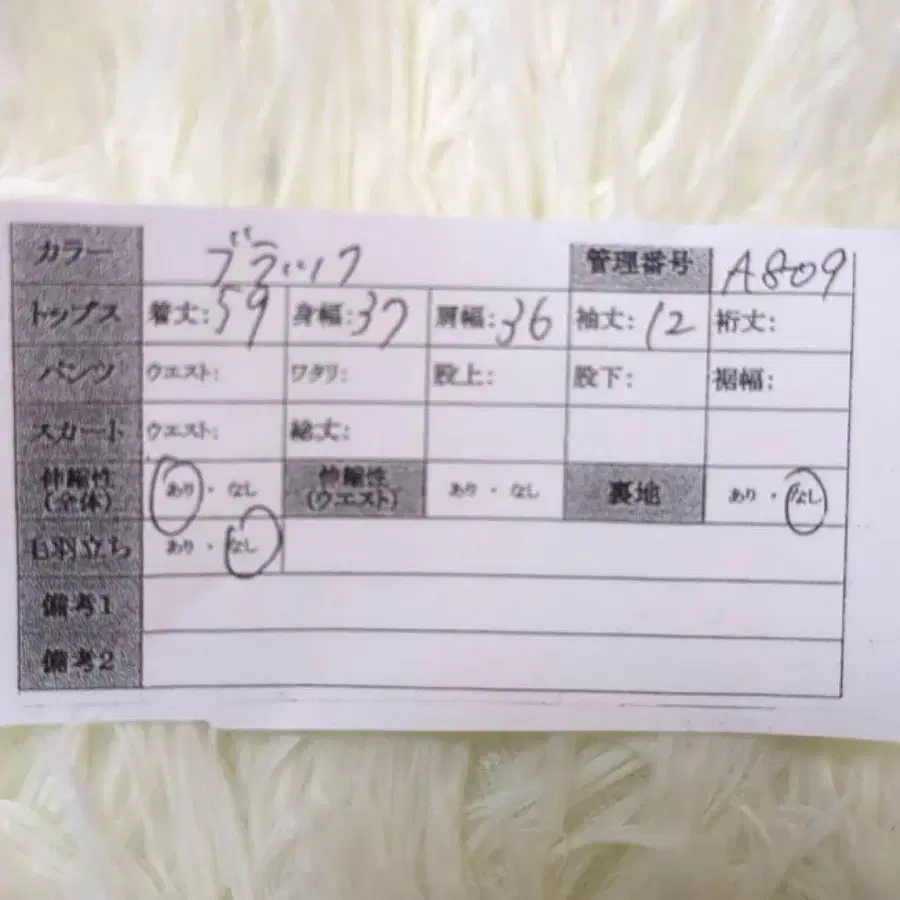 カラー ブラック 管理番号 A809
トップス 着丈:59 身幅:37 肩幅:36 袖丈:12 裄丈:
パンツ ウエスト: ワタリ: 股上: 股下: 裾幅:
スカート ウエスト: 総丈:
伸縮性(全体) あり・なし 伸縮性(ウエスト) あり・なし 裏地 あり・なし
毛羽立ち あり・なし
備考1
備考2